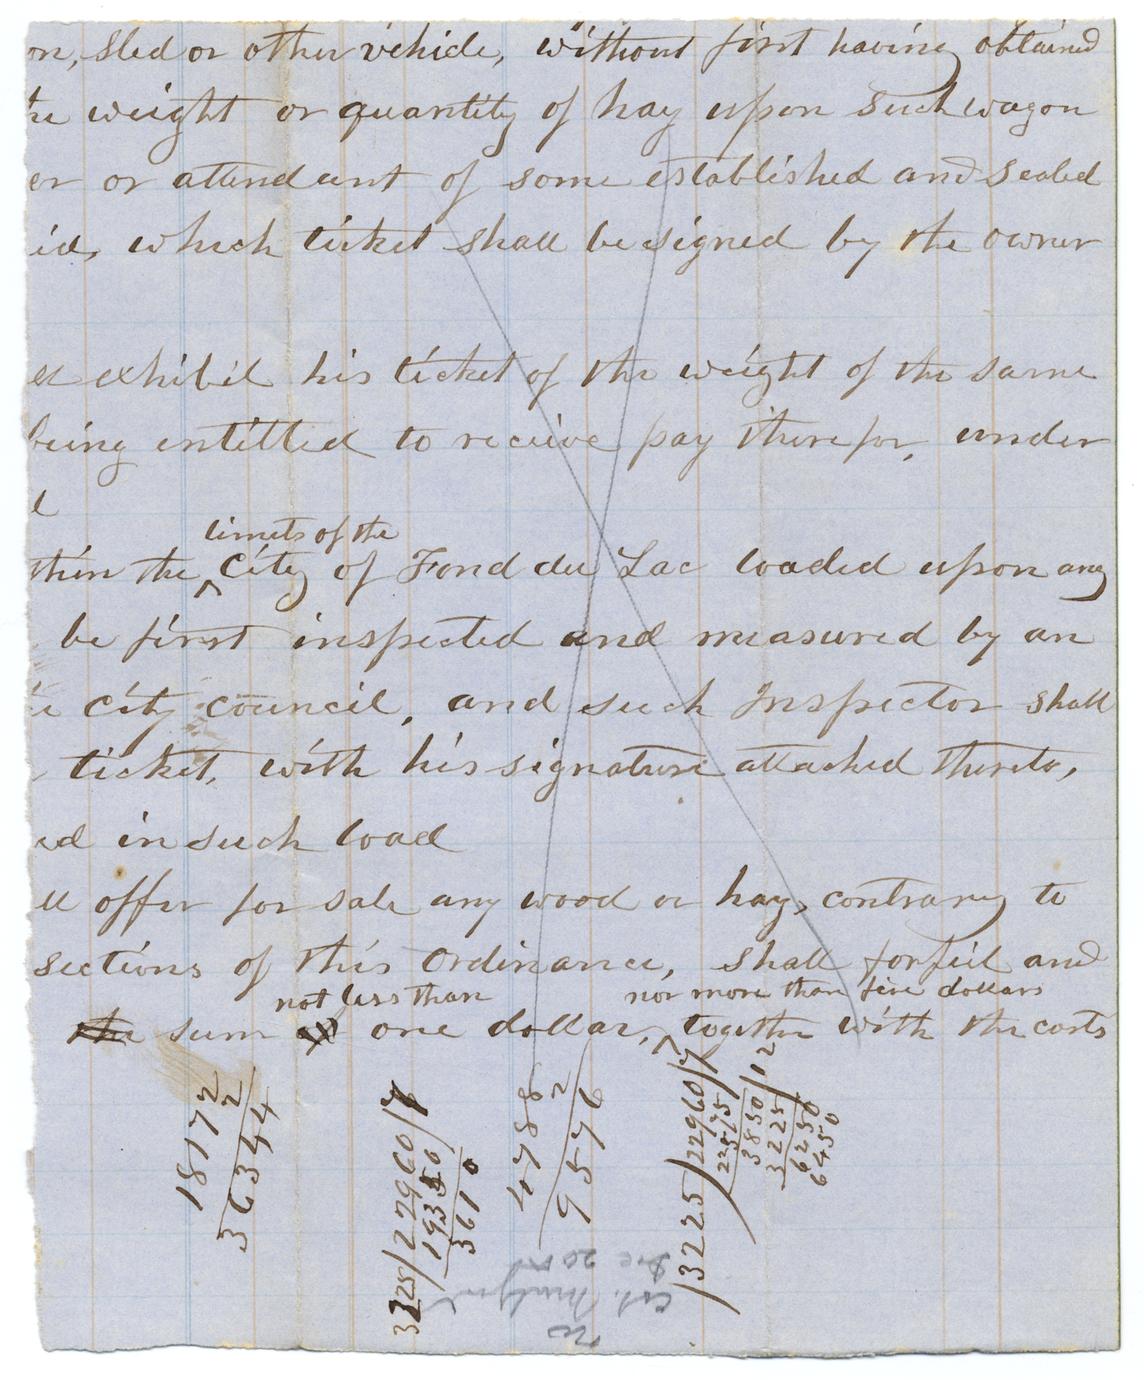 on, sled or other vehicle, without first having obtained
he weight or quantity of hay upon such wagon
er or attendant of some established and sealed
id, which ticket shall be signed by the owner
ll exhibit his ticket of the weight of the same
being entitled to receive pay therefor, under
l
limits of the
thin the ^ City of Fond du Lac loaded upon any
be first inspected and measured by an
e city council, and such Inspector shall
ticket, with his signature attached thereto,
ed in such load
ll offer for sale any wood or hay, contrary to
sections of this Ordinance, shall forfeit and
not less than nor more than five dollars
the sum of one dollar, ^ together with the costs
18172
2
36344
3225/27960/7
19350
3610
4788
2
9576
/3225/22960/7
22575
3850/12
3225
6250
6450
20